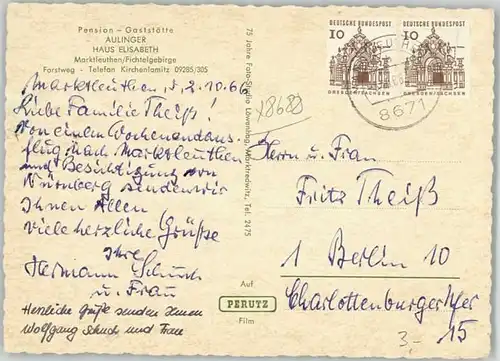 Pension - Gaststätte
AULINGER
HAUS ELISABETH
Marktleuthen/Fichtelgebirge
Forstweg - Telefon Kirchenlamitz 09285/305
Marktleuthen, d. 2.10.66
Liebe Familie Theiß!
Von einem Wochenendaus-
flug nach Marktleuthen
und Besichtigung von
Nürnberg senden wir
Ihnen Allen
viele herzliche Grüße
Ihre
Hermann Schuch
u. Frau
Herzliche Grüße senden Ihnen
Wolfgang Schuch und Frau
75 Jahre Foto-Studio Löwenhag, Marktredwitz, Tel. 2475
Auf
PERUTZ
Film
DEUTSCHE BUNDESPOST
10
DRESDEN/SACHSEN
DEUTSCHE BUNDESPOST
10
DRESDEN/SACHSEN
8671
X8688
Herrn u. Frau
Fritz Theiß
1 Berlin 10
Charlottenburger Ufer
15
3,-